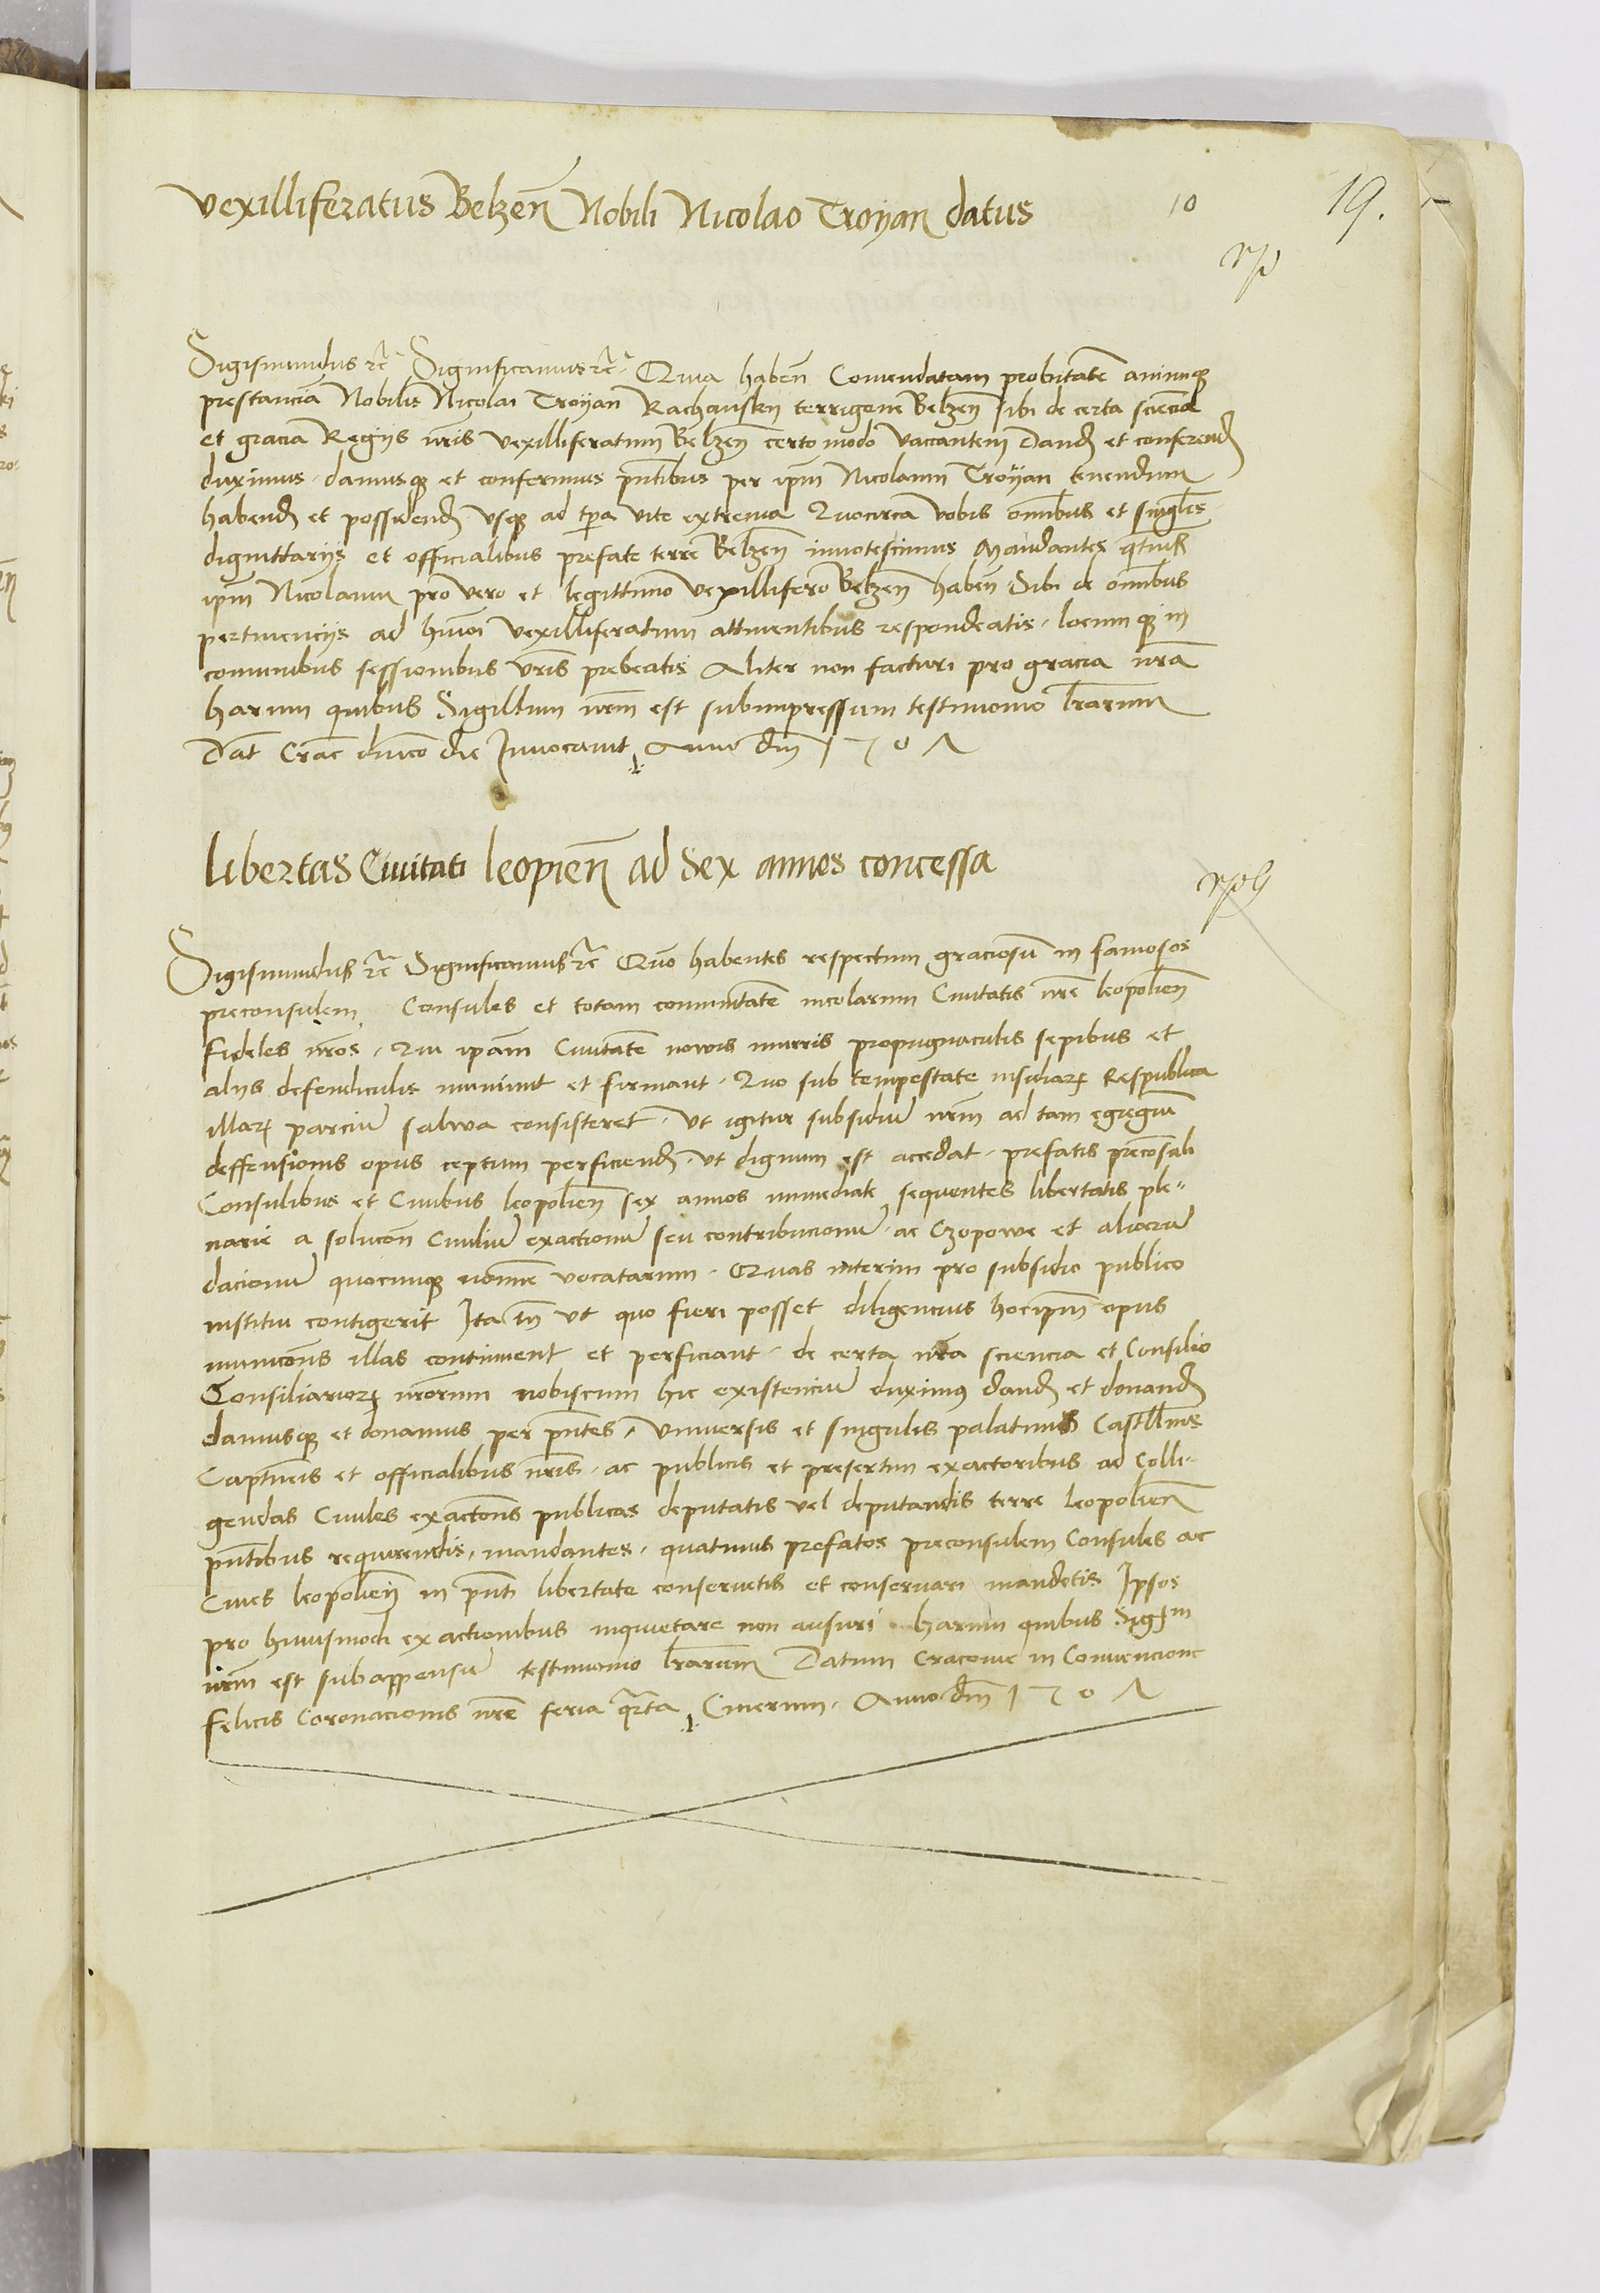 Vexilliferatus Belzen̄ Nobili Nicolao Troyan datus
10
19.
Sigismundus rc̄ Significamus rc̄. Quia haben̄ Comendatam probitatē animiqȝ
prestanciā Nobilis Nicolai Troyan terrigene Belzen̄ sibi de certa sciencia
et gracia Regijs nr̄is Vexilliferatum Belzen̄ certo modo vaccantem Dand̄ et conferend̄
duximus. damusqȝ et conferimus pn̄tibus per ip̄m Nicolaum Troyan tenendum
habend̄ et possidend̄ vsqȝ ad tp̄a vite extrema Quocirca vobis om̄ibus et singl̄is
dignittarijs et officialibus prefate terre Belzen̄ innotescimus Mandantes
ip̄m Nicolaum pro vero et legittimo Vexillifero Belzen̄ haben̄ Sibi de om̄ibus
pertinencijs ad hm̄oi Vexilliferatum attinentibus respondeatis. locumqȝ in
comunibus sessionibus vr̄is prebeatis Aliter non facturi pro gracia nr̄a
harum quibus Sigillum nr̄m est subimpressum testimonio lr̄arum
Dat̄ Crac̄ d̄nico die Inuocauit Anno dn̄i 1507
Libertas Ciuitati leopien̄ ad Sex annos concessa
Sigismundus rc̄ Significamus rc̄ Quō habentes respectum graciosū in famosos
preconsulem Consules et totam comunitatē incolarum Ciuitatis nr̄e leopolien̄
fideles nr̄os. Qui ipam Ciuitatē nowis murris propugnaculis sepibus et
alijs defendiculis muniunt et firmant. Quo sub tempestate insidiarȝ Respublica
illarȝ parciū salwa consisteret. Vt igitur subsidiū nr̄m ad tam egregiū
deffensionis opus ceptum perficiend̄. vt dignum est accedat. prefatis precōsuli
Consulibus et Ciuibus leopolien̄ sex annos immediate sequentes libertatis ple-
narie a solucōn̄ Ciuiliū exactionū seu contribucionū. ac Czopowe et aliarū
dacionū quocunqȝ nomīe vocatarum. Quas interim pro subsidio publico
institui contigerit Ita tn̄ vt quo fieri posset diligencius hocip̄m opus
municōnis illas continuent et perficiant. de certa nr̄a sciencia et Consilio
Consiliariorȝ nr̄orum nobiscum hic existenciū duximus dand̄ et donand̄
damusqȝ et donamus per pn̄tes. Vniuersis et singulis palatinis Castll̄nis
Captn̄eis et officialibus nr̄is. ac publicis et presertim exactoribus ad Colli-
gendas Ciuiles exactōnes publicas deputatis vel deputandis terre leopolien̄
pn̄tibus requirendis. mandantes. quatinus prefatos preconsulem Consules ac
Ciues leopolien̄ in pn̄ti libertate conseruetis et conseruari mandetis Ipsos
pro huiusmodi exactionibus inquietare non ausuri harum quibus Sigm̄
nr̄m est subappensū testimonio lr̄arum Datum Cracouie in Conuencione
felicis Coronacionis nr̄e feria qrta Cinerum. Anno dn̄i 1507